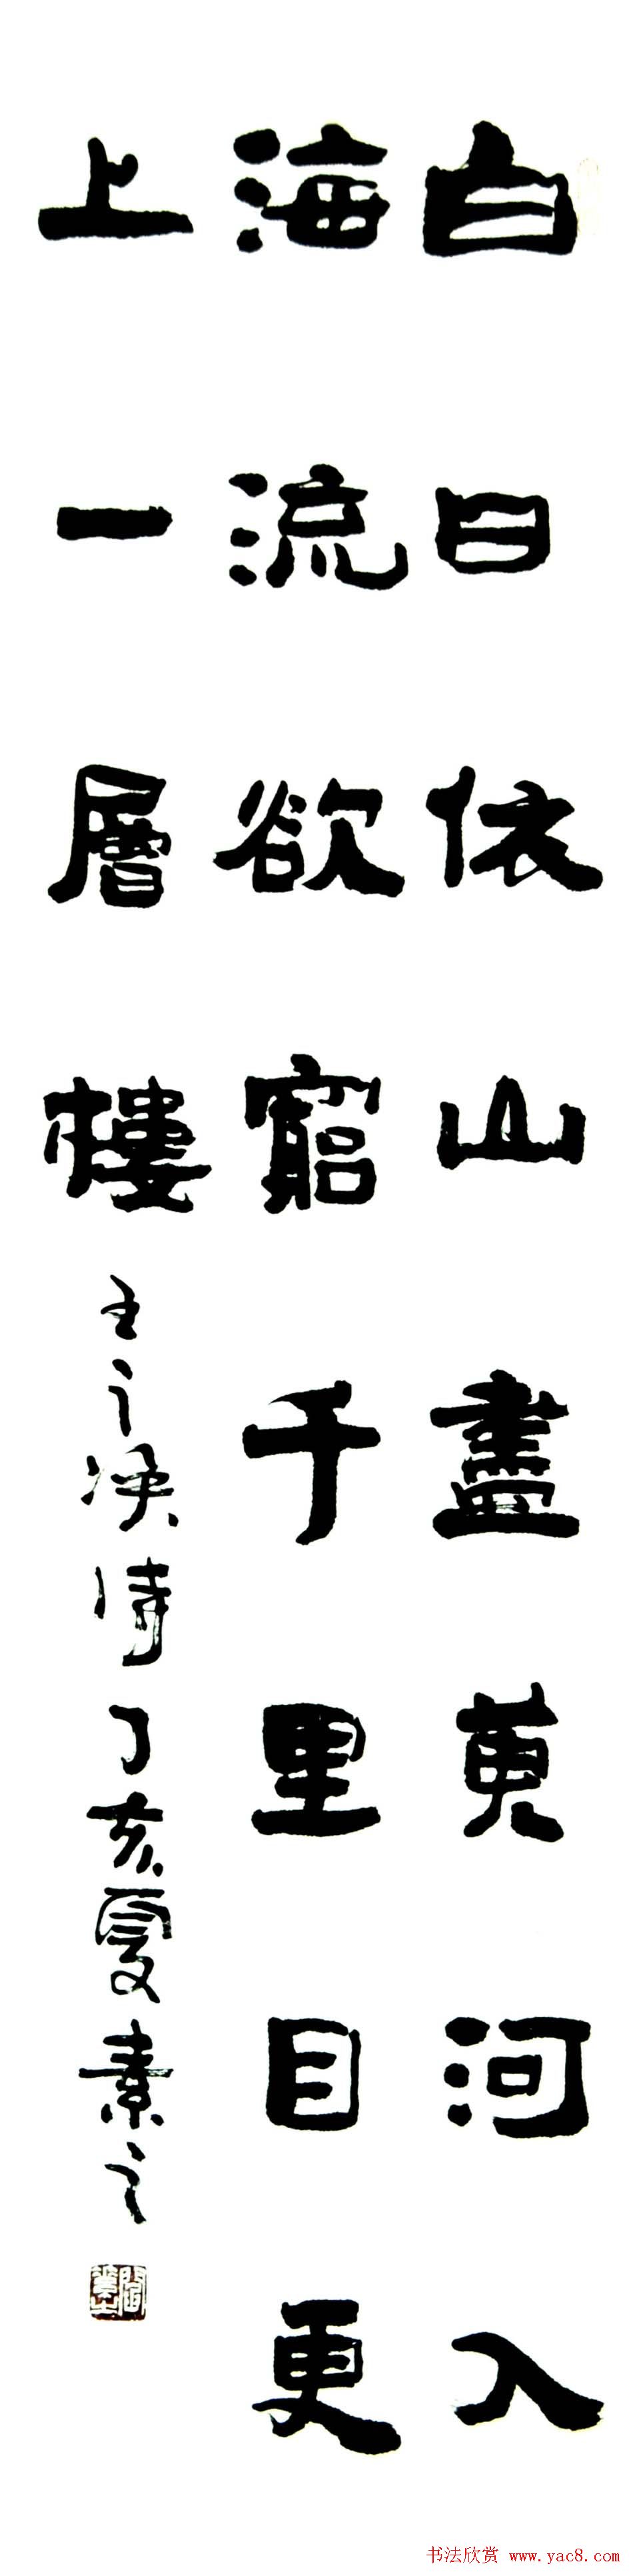 白日依山盡黄河入
海流欲窮千里目更
上一層樓
王之涣诗丁亥夏素之
书法欣赏 www.yac8.com